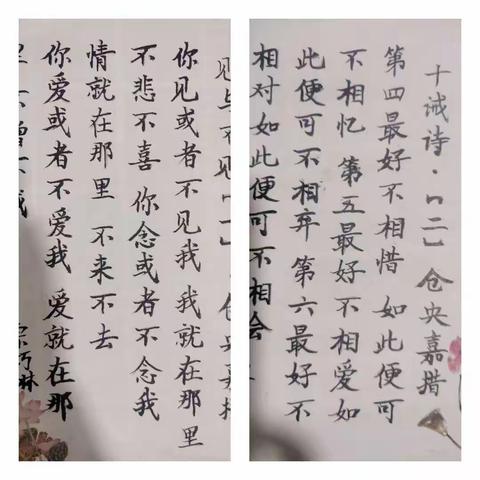 见与不见【一】仓央嘉措
你见或者不见我 我就在那里
不悲不喜 你念或者不念我
情就在那里 不来不去
你爱或者不爱我 爱就在那
里 不增不减
十诫诗·【二】仓央嘉措
第四最好不相惜 如此便可
不相忆 第五最好不相爱 如
此便可不相弃 第六最好不
相对 如此便可不相会